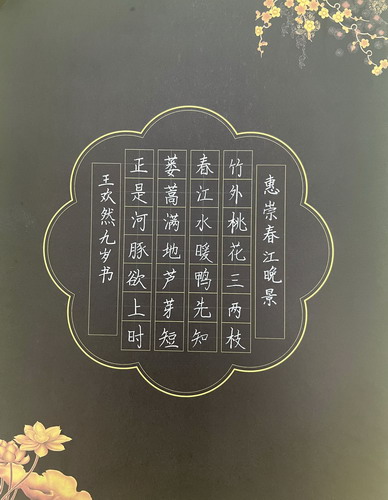 惠崇春江晚景
竹外桃花三两枝
春江水暖鸭先知
蒌蒿满地芦芽短
正是河豚欲上时
王欢然九岁书